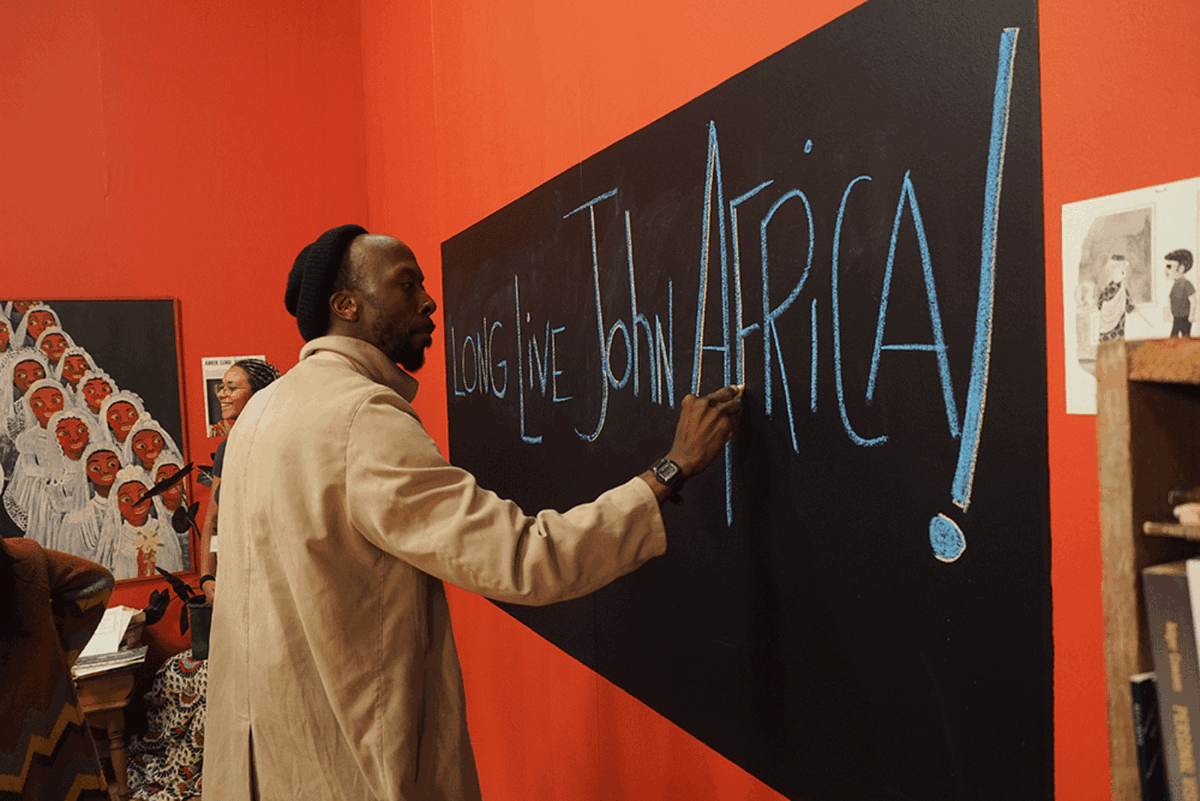 LONG LiVE John AFRiCA!